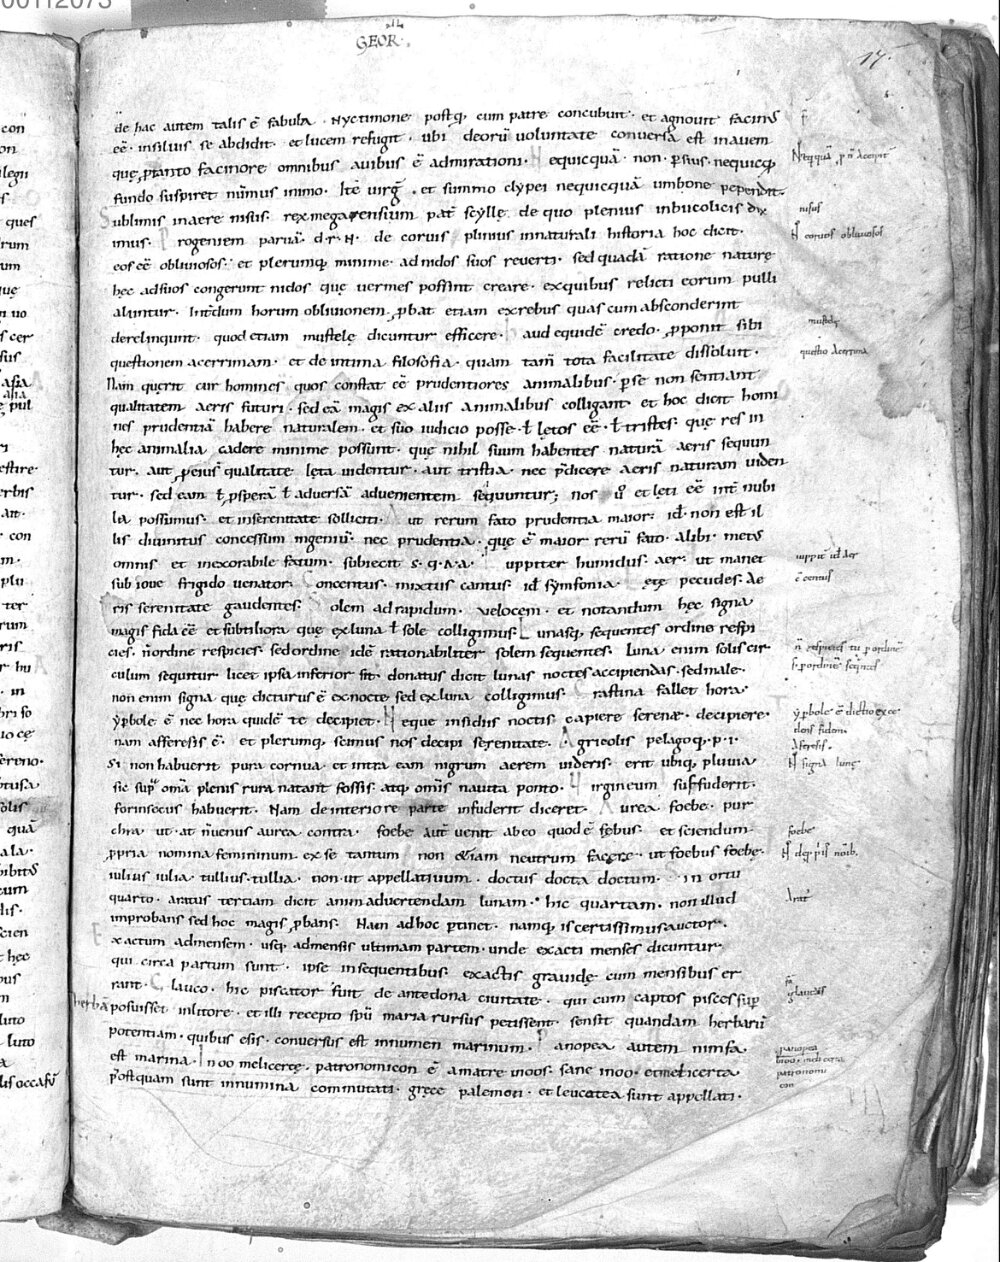 00112073
GEOR.
17.
de hac autem talis ē fabula. Nyctimone postq; cum patre concubuit. et agnouit facinꝰ
eē. insiluis se abdidit. et lucem refugit. ubi deorū uoluntate conuersa est inauem
quę ꝓtanto facinore omnibus auibus ē admirationi. Nequicquā. non. ꝑsius. nequicq;
fundo suspiret nūmus inimo. Itē uirḡ. et summo clypei nequicquā umbone pependit.
Sublimis inaere nisus. rex megarensium pat̄ scyllę. de quo plenius inbucolicis dix
imus. Progeniem paruā. d.r.N. de coruis plinius innaturali historia hoc dicit.
eos eē obliuiosos. et plerumq; minime. ad nidos suos reuerti. sed quadā ratione naturę
hęc adsuos congerunt nidos quę uermes possint creare. exquibus relicti eorum pulli
aluntur. Int̄dum horum obliuionem. ꝓbat etiam exrebus quas cum absconderint
derelinqunt. quod etiam mustelę dicuntur efficere. haud equidē credo. ꝓponit sibi
questionem acerrimam. et de intima filosofia. quam tam̄ tota facilitate dissoluit.
Nam querit cur homines quos constat eē prudentiores animalibus. ꝑse non sentiant
qualitatem aeris futuri. sed eā magis ex aliis animalibus colligant. et hoc dicit homi
nes prudentiā habere naturalem. et suo iudicio posse. ł lętos eē. ł tristes. quę res in
hęc animalia cadere minime possunt. quę nihil suum habentes naturā aeris sequun
tur. aut ꝓeius qualitate lęta uidentur. aut tristia. nec p̄dicere aeris naturam uiden
tur. sed eam ł ꝓsperā ł aduersā aduenientem sequuntur; nos ů et lęti eē int̄ nubi
la possumus. et inserenitate solliciti. Aut rerum fato prudentia maior. id. non est il
lis diuinitus concessum ingeniū. nec prudentia. quę ē maior rerū fato. Alibi. metꝰ
omnis et inexorabile fatum. subiecit s.q.a.a. Iuppiter humidus. aer. ut manet
sub ioue frigido uenator. Concentus. mixtus cantus. id symfonia. Lętę pecudes. Ae
ris serenitate gaudentes. Solem ad rapidum. uelocem. et notandum hęc signa
magis fida eē et subtiliora quę exluna ł sole colligimus. Lunasq; sequentes ordine respi
cies. n̄ ordine respicies. sed ordine idē rationabiliter solem sequentes. luna enim solis cir
culum sequitur licet ipsa inferior sit. donatus dicit lunas noctes accipiendas. sed male.
non enim signa quę dicturus ē ex nocte sed ex luna colligimus. Crastina fallet hora.
ẏꝑbole ē nec hora quidē te decipiet. Neque insidiis noctis capiere serenę. decipiere.
nam afferesis ē. et plerumq; scimus nos decipi serenitate. Agricolis pelagoq.p.i.
Si non habuerit pura cornua. et intra eam nigrum aerem uideris. erit ubiq; pluuia
sic sup̄ om̄a plenis rura natant fossis. atq; om̄is nauita ponto. Virgineum suffuderit.
forinsecus habuerit. Nam de interiore parte infuderit diceret. Aurea foebe. pur
chra ut. at n̄ uenus aurea contra. foebe aut̄ uenit ab eo quod ē febus. et sciendum.
ꝓpria nomina femininum. ex se tantum non etiam neutrum facere. ut foebus foebe.
iulius iulia. tullius. tullia. non ut appellatiuum. doctus docta doctum. Sin ortu
quarto. aratus tertiam dicit animaduertendam lunam. hic quartam. non illud
improbans sed hoc magis ꝓbans. Nam ad hoc ꝑtinet. namq; is certissimus auctor.
Exactum admensem. usq; admensis ultimam partem. unde exacti menses dicuntur.
qui circa partum sunt. ipse insequentibus. exactis grauidę cum mensibus er
rant. Glauco. hic piscator fuit de antedona ciuitate. qui cum captos pisces sup̄
herbā posuisset inlitore. et illi recepto spū maria rursus petissent. sensit quandam herbarū
potentiam. quibus esis. conuersus est innumen marinum. Panopea autem nimfa.
est marina. Inoo melicertę. patronomicon ē amatre inoos. sane inoo. et melicerta
postquam sunt innumina commutati. gręce palemon. et leucotea sunt appellati.
nisus
N̄ coruos obliuiosos
mustelę
questio acerrima
iuppit̄ id aer
cōcentus
n̄ respicies tu ꝑ ordinē
ẏꝑbole ē dictio exce
dens fidem.
Aferesis.
N̄ signa lunę
foebe
Arat̄
glaucus
panopea
inoo. melicerta
patronomi
con